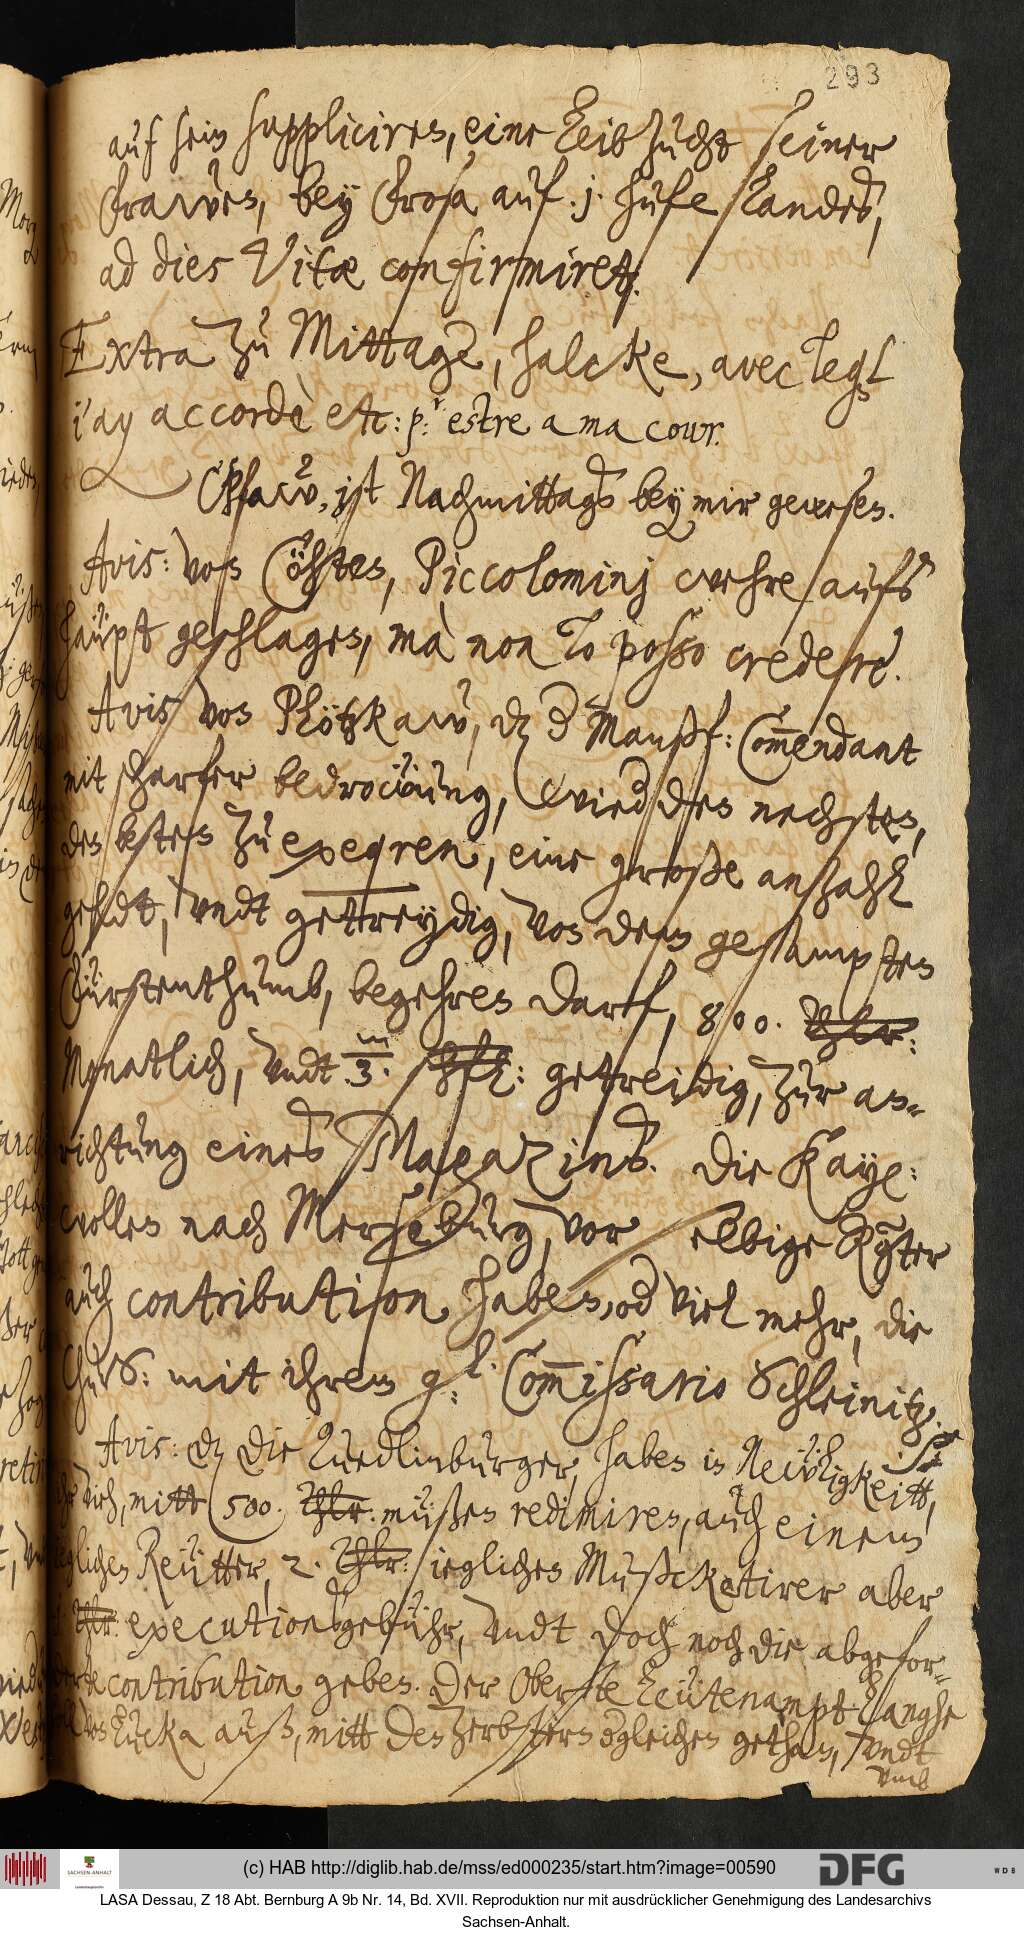 293
auf sein suppliciren, eine Leibzucht seiner
Frawen, bey Frosa auf .j. hufe Landes,
ad dies Vitæ confirmiret.
Extra zu Mittage, halcke, avec
j'ay accordè etc: p:r estre a ma cour.
Pfaw, ist Nachmittags bey mir gewesen.
Avis: von Cöhten, Piccolominj wehre aufs
haüpt geschlagen, mà non lo posso credere.
Avis von Plötzkaw, dz d Manßf: Com̄endant
mit scharfer bedrowung, wird des nechsten,
des besten zu exeqren, eine große anzahl
geldt, undt gettreydig, von dem gesampten
Fürstenthumb, begehren darf, 800. Thlr:
Monatlich, undt .3. m getreidig, zur an-
richtung eines Magazins. Die Kayße:
wollen nach Merseburg, vor elbige Ö̈rter
auch contribution haben, od viel mehr, die
ChurS: mit ihrem g:l. Com̄issario Schleinitz.
Avis: dz die Quedlinburger, haben in Neẅligkeitt,
sich, mitt 500. Thlr. müßen redimiren, auch einem
ieglichen Reütter, 2. Thlr: ieglichen Mußcketirer aber
1. Thlr: executionsgebühr, undt doch noch die abgefor-
derte contribution geben. Der Oberste Leütenampt Langhe
von Lucka auß, mitt den Zerbstern dergleichen gethan, undt
umb
(c) HAB http://diglib.hab.de/mss/ed000235/start.htm?image=00590
DFG
WDB
SACHSEN-ANHALT
LASA Dessau, Z 18 Abt. Bernburg A 9b Nr. 14, Bd. XVII. Reproduktion nur mit ausdrücklicher Genehmigung des Landesarchivs
Sachsen-Anhalt.